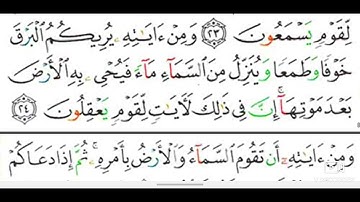 لِّقَوْمٍ يَسْمَعُونَ ﴿٢٣﴾ وَمِنْ ءَايَٰتِهِۦ يُرِيكُمُ ٱلْبَرْقَ
خَوْفًا وَطَمَعًا وَيُنَزِّلُ مِنَ ٱلسَّمَآءِ مَآءً فَيُحْىِۦ بِهِ ٱلْأَرْضَ
بَعْدَ مَوْتِهَآ ۚ إِنَّ فِى ذَٰلِكَ لَءَايَٰتٍ لِّقَوْمٍ يَعْقِلُونَ ﴿٢٤﴾
وَمِنْ ءَايَٰتِهِۦٓ أَن تَقُومَ ٱلسَّمَآءُ وَٱلْأَرْضُ بِأَمْرِهِۦ ۚ ثُمَّ إِذَا دَعَاكُمْ